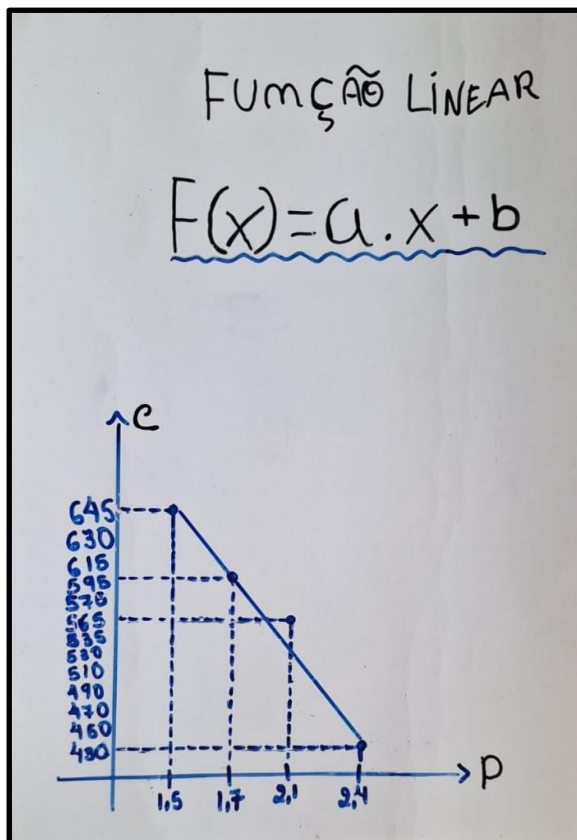 FUMÇÃO LINEAR
F(x)=a.x+b
C
645
630
615
595
575
565
535
530
510
490
470
460
430
P
1,5 1,7 2,1 2,4